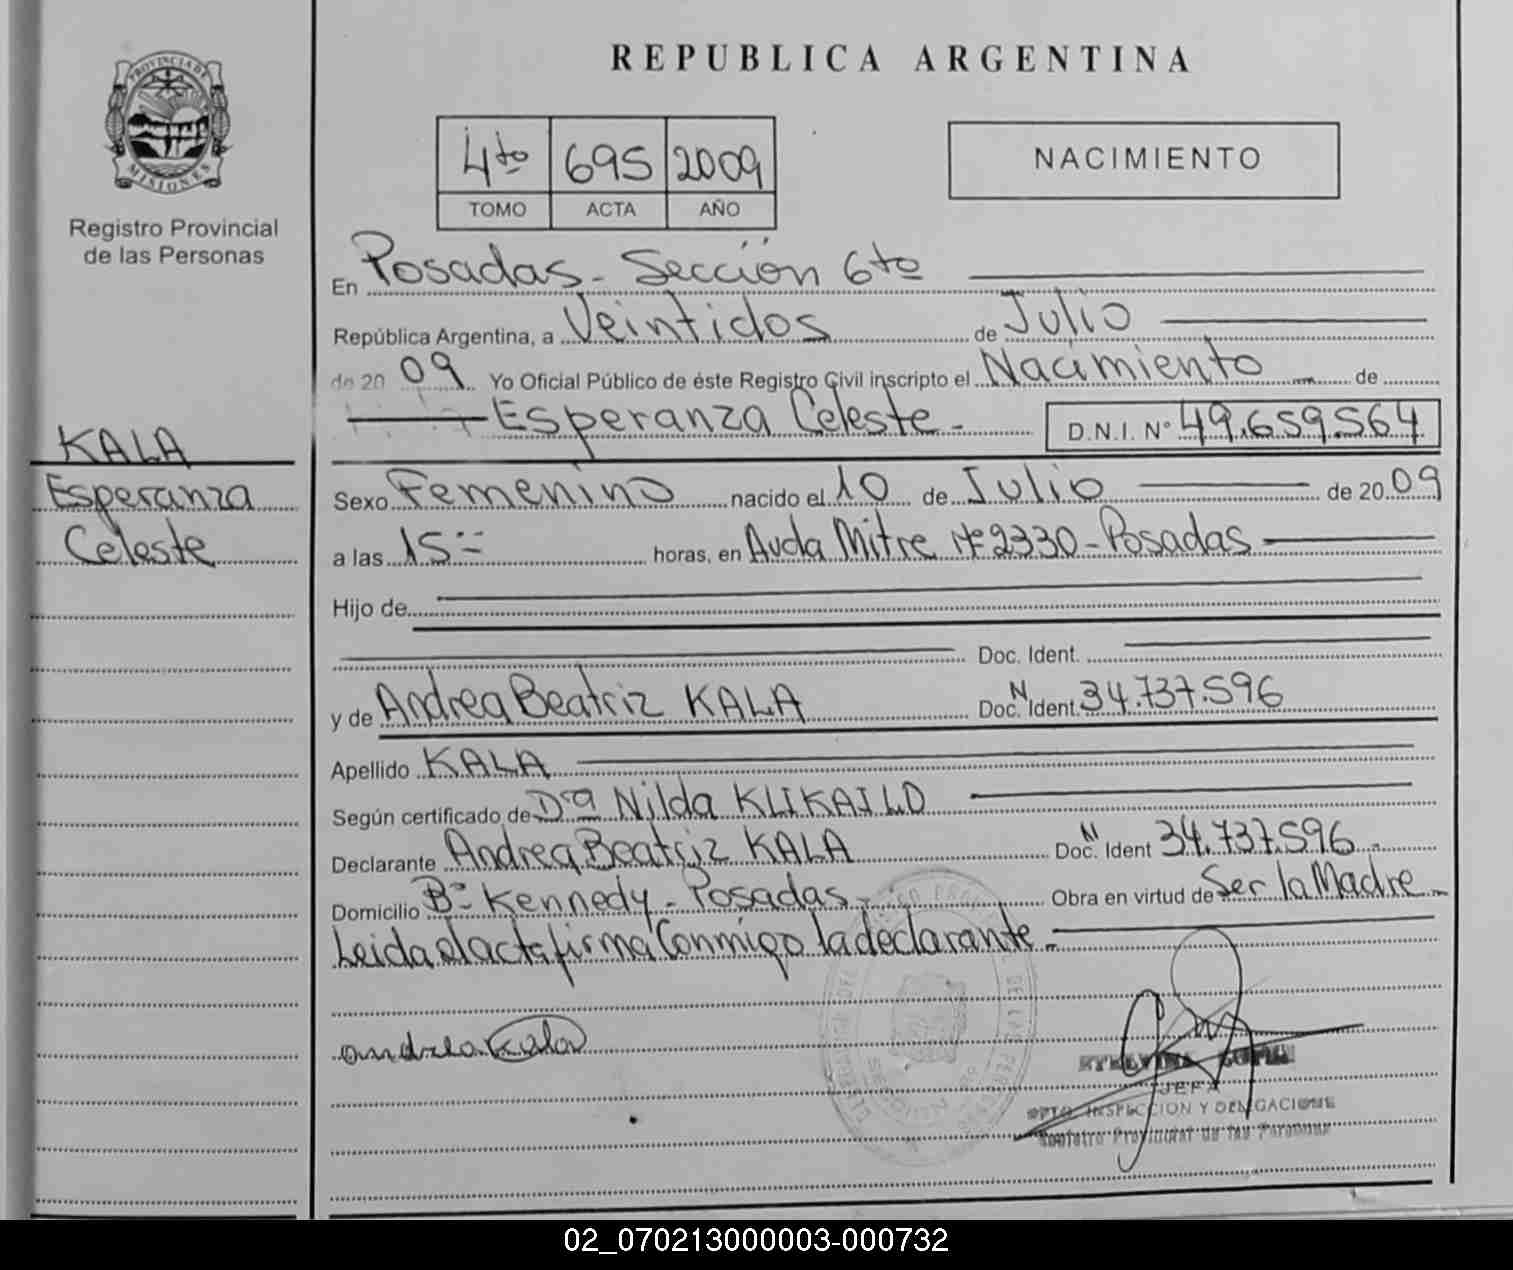 PROVINCIA DE
MISIONES
Registro Provincial
de las Personas
KALA
Esperanza
Celeste
REPUBLICA ARGENTINA
4to 695 2009
TOMO ACTA AÑO
NACIMIENTO
En Posadas - Sección 6to
República Argentina, a Veintidos de Julio
de 20 09 Yo Oficial Público de éste Registro Civil inscripto el Nacimiento de
Esperanza Celeste - D.N.I. Nº 49.659.564
Sexo Femenino nacido el 10 de Julio de 20 09
a las 15 horas, en Avda Mitre Nº 2330 - Posadas
Hijo de
Doc. Ident.
y de Andrea Beatriz KALA Doc. N Ident. 34.737.596
Apellido KALA
Según certificado de Dra Nilda KLIKAILO
Declarante Andrea Beatriz KALA Doc. N Ident 34.737.596 -
Domicilio Bº Kennedy - Posadas - Obra en virtud de Ser la Madre -
Leida el acta firma Conmigo la declarante -
andrea kala
JEFA
DPTO. INSPECCION Y DELEGACIONES
Registro Provincial de las Personas
02_070213000003-000732